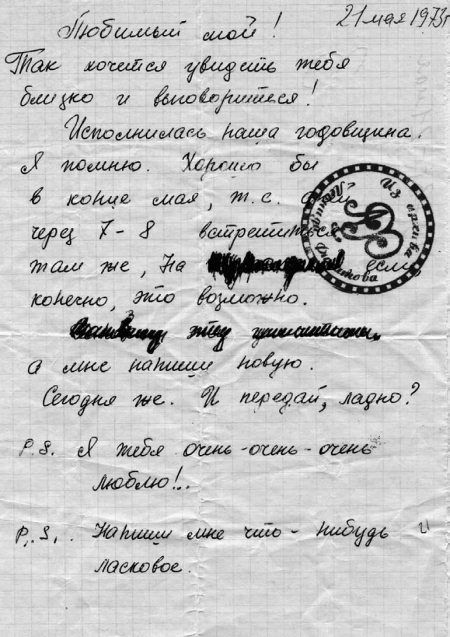 21 мая 1973г
Любимый мой!
Так хочется увидеть тебя
близко и выговориться!
Исполнилась наша годовщина.
Я помню. Хорошо бы
в конце мая, т.е.
через 7-8 встретиться
там же, На если
конечно, это возможно.
а мне напиши новую.
Сегодня же. И передай, ладно?
P.S. Я тебя очень-очень-очень
люблю!..
P.S. Напиши мне что-нибудь
ласковое.
Из архива